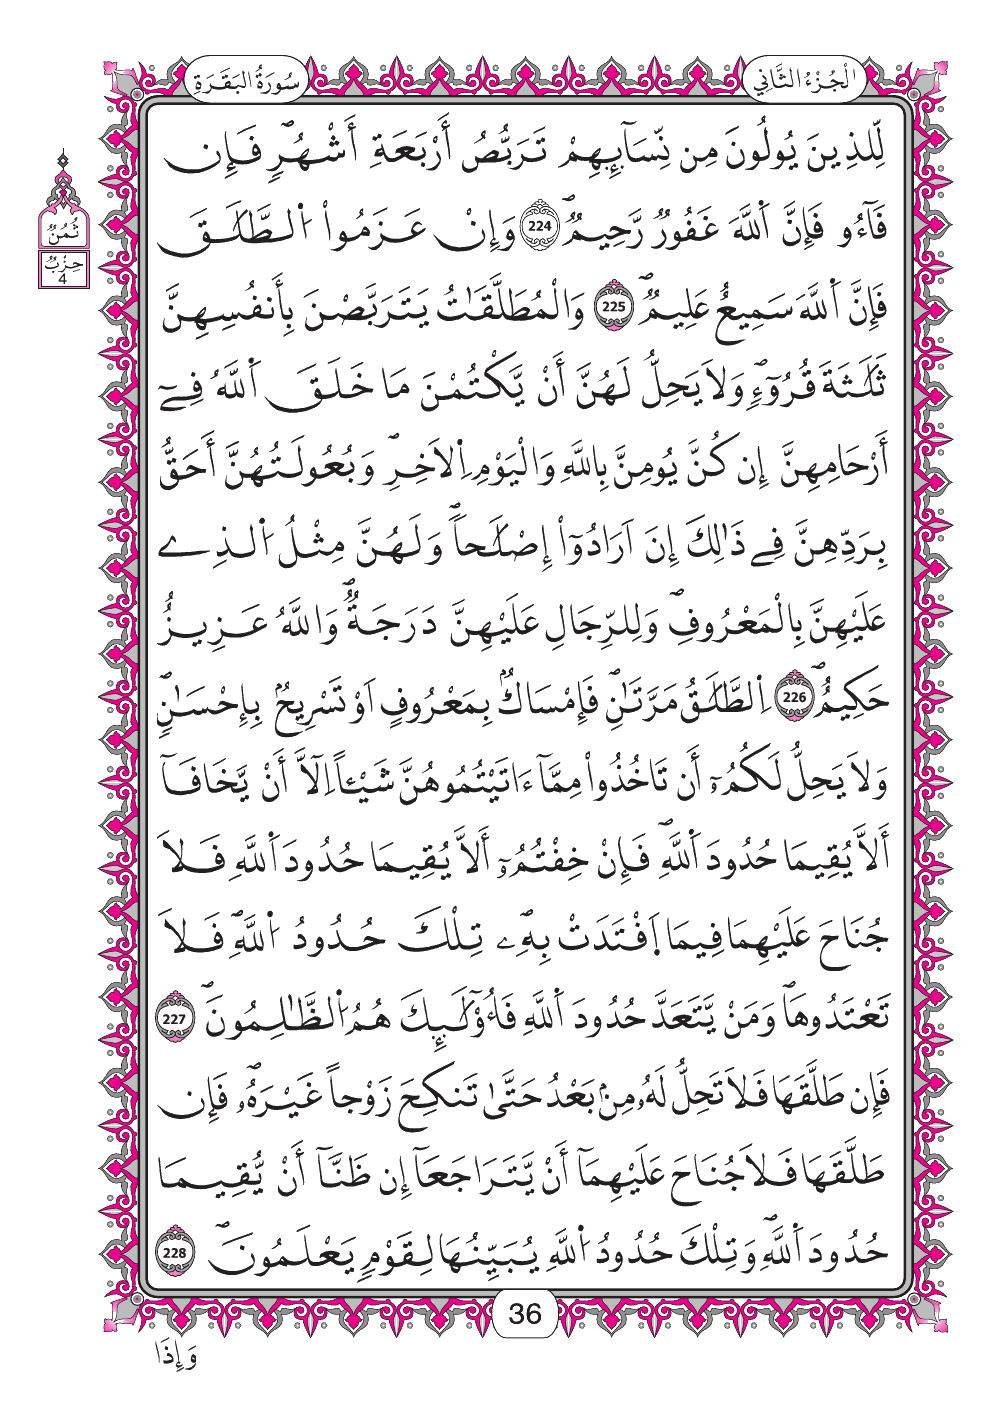 الْجُزْءُ الثَّانِي
سُورَةُ الْبَقَرَةِ
ثُمُنُ
حِزْبُ
4
لِّلذِينَ يُولُونَ مِن نِّسَآئِهِمْ تَرَبُّصُ أَرْبَعَةِ أَشْهُرٖۖ فَإِن
فَآءُو فَإِنَّ اَ۬للَّهَ غَفُورٞ رَّحِيمٞۖ 224 وَإِنْ عَزَمُواْ اُ۬لطَّلَٰقَ
فَإِنَّ اَ۬للَّهَ سَمِيعٌ عَلِيمٞۖ 225 وَالْمُطَلَّقَٰتُ يَتَرَبَّصْنَ بِأَنفُسِهِنَّ
ثَلَٰثَةَ قُرُوٓءٖۖ وَلَا يَحِلُّ لَهُنَّ أَنْ يَّكْتُمْنَ مَا خَلَقَ اَ۬للَّهُ فِےٓ
أَرْحَامِهِنَّ إِن كُنَّ يُومِنَّ بِاللَّهِ وَالْيَوْمِ اِ۬لَاخِرِۖ وَبُعُولَتُهُنَّ أَحَقُّ
بِرَدِّهِنَّ فِے ذَٰلِكَ إِنَ اَرَادُوٓاْ إِصْلَٰحاٗۖ وَلَهُنَّ مِثْلُ اُ۬لذِے
عَلَيْهِنَّ بِالْمَعْرُوفِۖ وَلِلرِّجَالِ عَلَيْهِنَّ دَرَجَةٞۖ وَاللَّهُ عَزِيزٌ
حَكِيمٌۖ 226 اِ۬لطَّلَٰقُ مَرَّتَٰنِۖ فَإِمْسَاكُۢ بِمَعْرُوفٍ اَوْ تَسْرِيحُۢ بِإِحْسَٰنٖۖ
وَلَا يَحِلُّ لَكُمُۥٓ أَن تَاخُذُواْ مِمَّآ ءَاتَيْتُمُوهُنَّ شَيْـٔاً اِلَّآ أَنْ يَّخَافَآ
أَلَّا يُقِيمَا حُدُودَ اَ۬للَّهِۖ فَإِنْ خِفْتُمُۥٓ أَلَّا يُقِيمَا حُدُودَ اَ۬للَّهِ فَلَا
جُنَاحَ عَلَيْهِمَا فِيمَا اَ۪فْتَدَتْ بِهِۦۖ تِلْكَ حُدُودُ اُ۬للَّهِۖ فَلَا
تَعْتَدُوهَاۖ وَمَنْ يَّتَعَدَّ حُدُودَ اَ۬للَّهِ فَأُوْلَٰٓئِكَ هُمُ اُ۬لظَّٰلِمُونَۖ 227
فَإِن طَلَّقَهَا فَلَا تَحِلُّ لَهُۥ مِنۢ بَعْدُ حَتَّىٰ تَنكِحَ زَوْجاً غَيْرَهُۥۖ فَإِن
طَلَّقَهَا فَلَا جُنَاحَ عَلَيْهِمَآ أَنْ يَّتَرَاجَعَآ إِن ظَنَّآ أَنْ يُّقِيمَا
حُدُودَ اَ۬للَّهِۖ وَتِلْكَ حُدُودُ اُ۬للَّهِ يُبَيِّنُهَا لِقَوْمٖ يَعْلَمُونَۖ 228
36
وَإِذَا